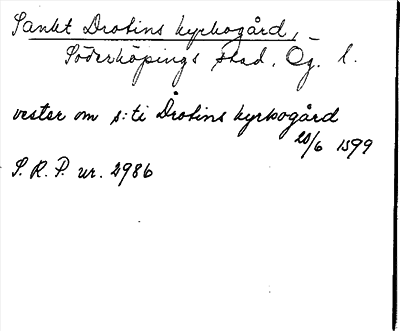 Sankt Drotins kyrkogård, –
Söderköpings stad, Ög. l.
vester om s:ti Drotins kyrkogård
20/6 1599
S. R. P. nr. 2986